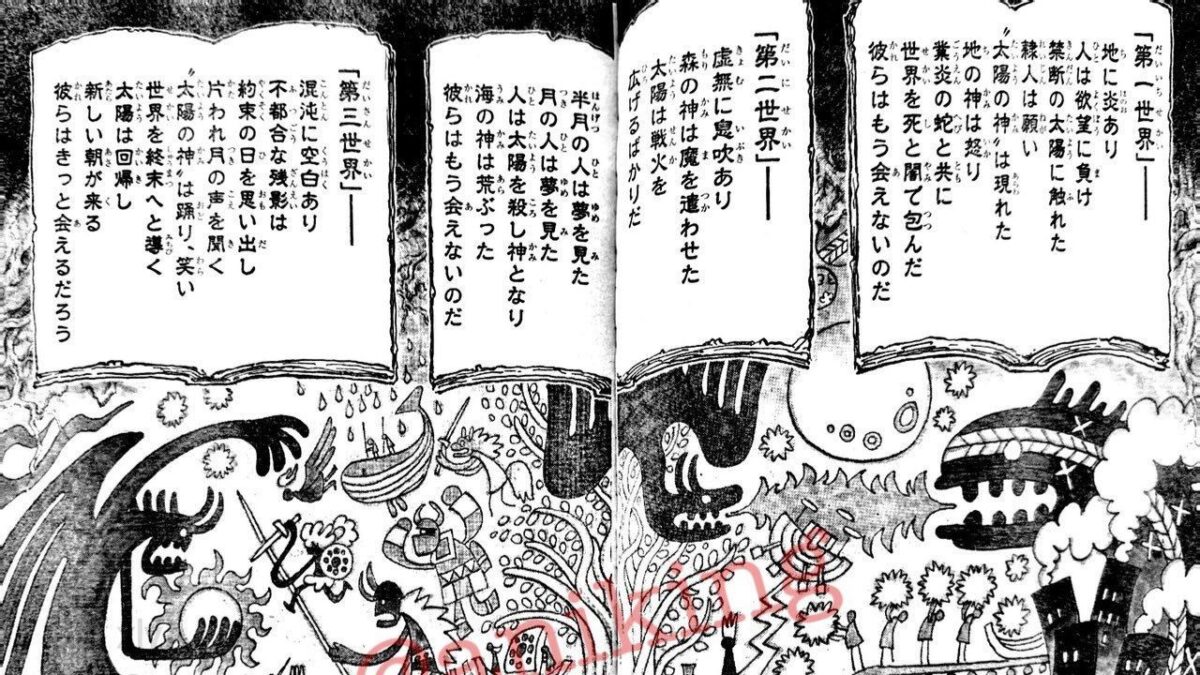 「第一世界」――
地に炎あり
人は欲望に負け
禁断の太陽に触れた
隷人は願い
〝太陽の神〟は現れた
地の神は怒り
業炎の蛇と共に
世界を死と闇で包んだ
彼らはもう会えないのだ
「第二世界」――
虚無に息吹あり
森の神は魔を遣わせた
太陽は戦火を
広げるばかりだ
半月の人は夢を見た
月の人は夢を見た
人は太陽を殺し神となり
海の神は荒ぶった
彼らはもう会えないのだ
「第三世界」――
混沌に空白あり
不都合な残影は
約束の日を思い出し
片われ月の声を聞く
〝太陽の神〟は踊り、笑い
世界を終末へと導く
太陽は回帰し
新しい朝が来る
彼らはきっと会えるだろう
@aniking